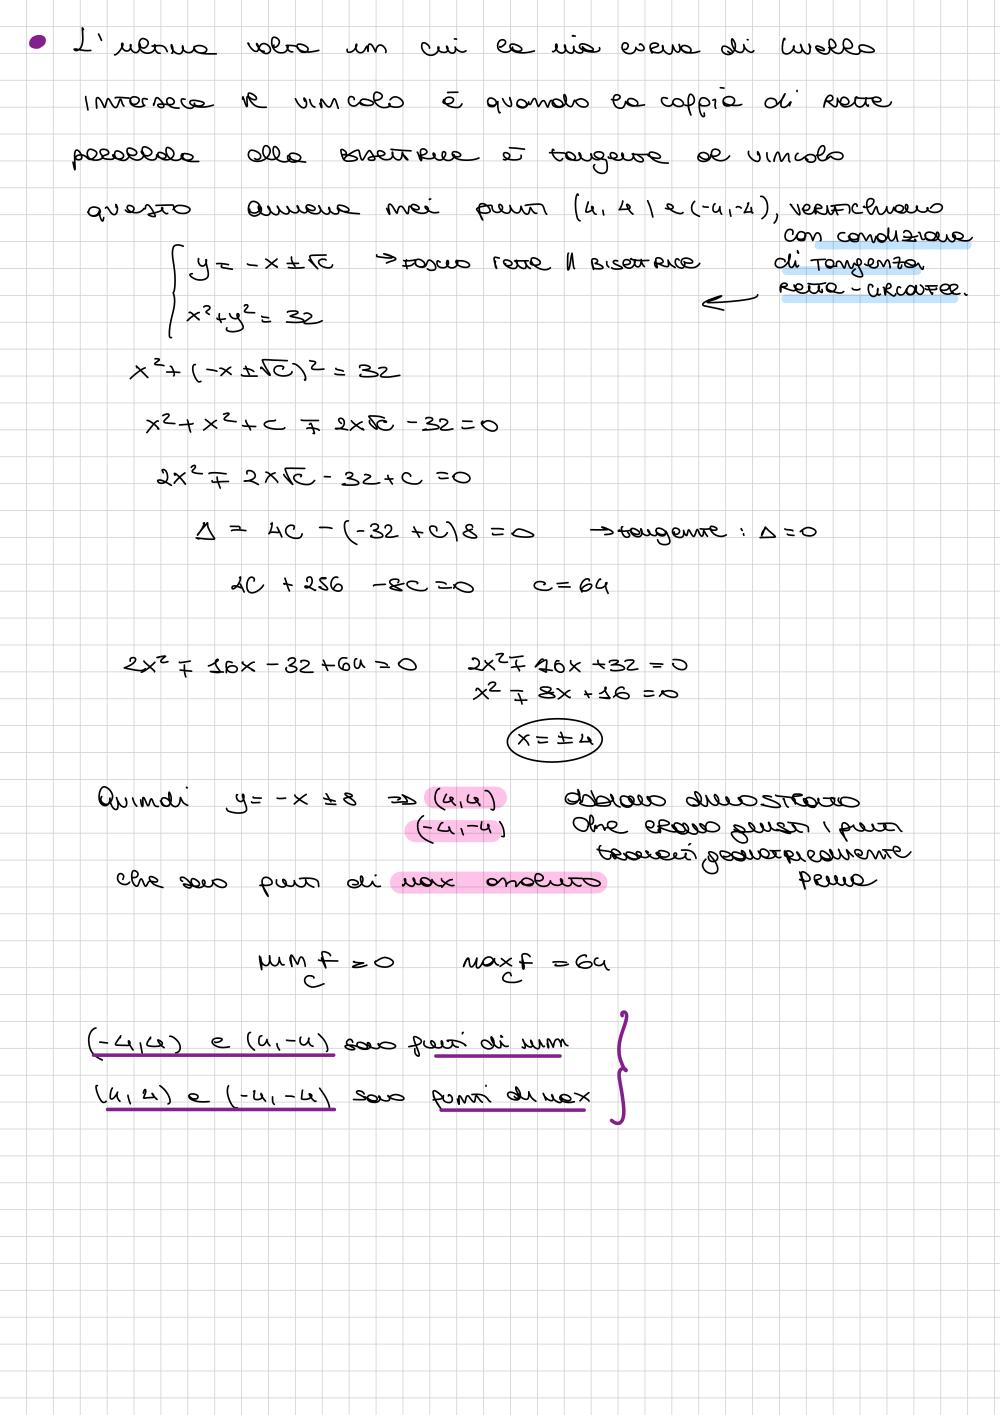 L'ultima volta in cui la mia curva di livello
interseca il vincolo è quando la coppia di rette
parallela alla BISETTRICE è tangente al vincolo
questo avviene nei punti (4, 4) e (-4,-4), VERIFICHIAMO
con condizione
di TANGENZA
RETTA - CIRCONFER.
y = -x ± √c → FASCIO rette // BISETTRICE
x² + y² = 32
x² + (-x ± √c)² = 32
x² + x² + c ∓ 2x√c - 32 = 0
2x² ∓ 2x√c - 32 + c = 0
Δ = 4c - (-32 + c)8 = 0 → tangente : Δ = 0
4c + 256 - 8c = 0 c = 64
2x² ∓ 16x - 32 + 64 = 0 2x² ∓ 16x + 32 = 0
x² ∓ 8x + 16 = 0
x = ± 4
Quindi y = -x ± 8 => (4,4) abbiamo dimostrato
(-4,-4) che erano giusti i punti
trovati geometricamente
prima
che sono punti di max assoluto
min f = 0 max f = 64
C C
(-4,4) e (4,-4) sono punti di min
(4,4) e (-4,-4) sono punti di max